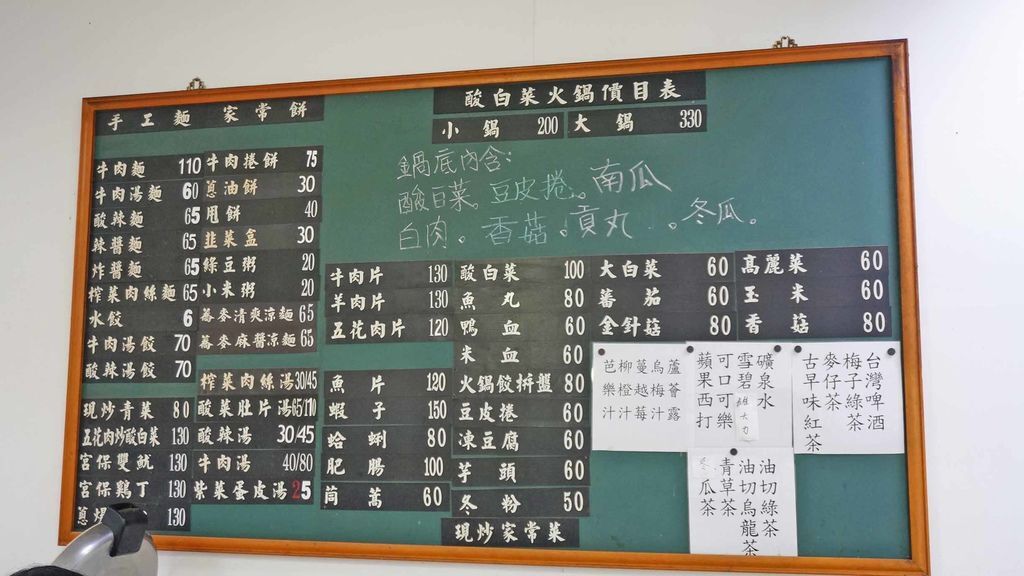 手工麵 家常餅
牛肉麵 110
牛肉湯麵 60
酸辣麵 65
辣醬麵 65
炸醬麵 65
榨菜肉絲麵 65
水餃 6
牛肉湯餃 70
酸辣湯餃 70
現炒青菜 80
五花肉炒酸白菜 130
宮保雙魷 130
宮保鷄丁 130
蔥爆 130
牛肉捲餅 75
蔥油餅 30
甩餅 40
韭菜盒 30
綠豆粥 20
小米粥 20
蕎麥清爽涼麵 65
蕎麥麻醬涼麵 65
榨菜肉絲湯 30/45
酸菜肚片湯 65/110
酸辣湯 30/45
牛肉湯 40/80
紫菜蛋皮湯 25
酸白菜火鍋價目表
小鍋 200 大鍋 330
鍋底內含:
酸白菜。豆皮捲。南瓜
白肉。香菇。貢丸。冬瓜。
牛肉片 130
羊肉片 130
五花肉片 120
魚片 120
蝦子 150
蛤蜊 80
肥腸 100
茼蒿 60
酸白菜 100
魚丸 80
鴨血 60
米血 60
火鍋餃拼盤 80
豆皮捲 60
凍豆腐 60
芋頭 60
冬粉 50
現炒家常菜
大白菜 60
蕃茄 60
金針菇 80
高麗菜 60
玉米 60
香菇 80
蘆薈露
烏梅汁
蔓越莓
柳橙汁
芭樂汁
礦泉水
雪碧 維大力
可口可樂
蘋果西打
台灣啤酒
梅子綠茶
麥仔茶
古早味紅茶
油切綠茶
油切烏龍茶
青草茶
冬瓜茶